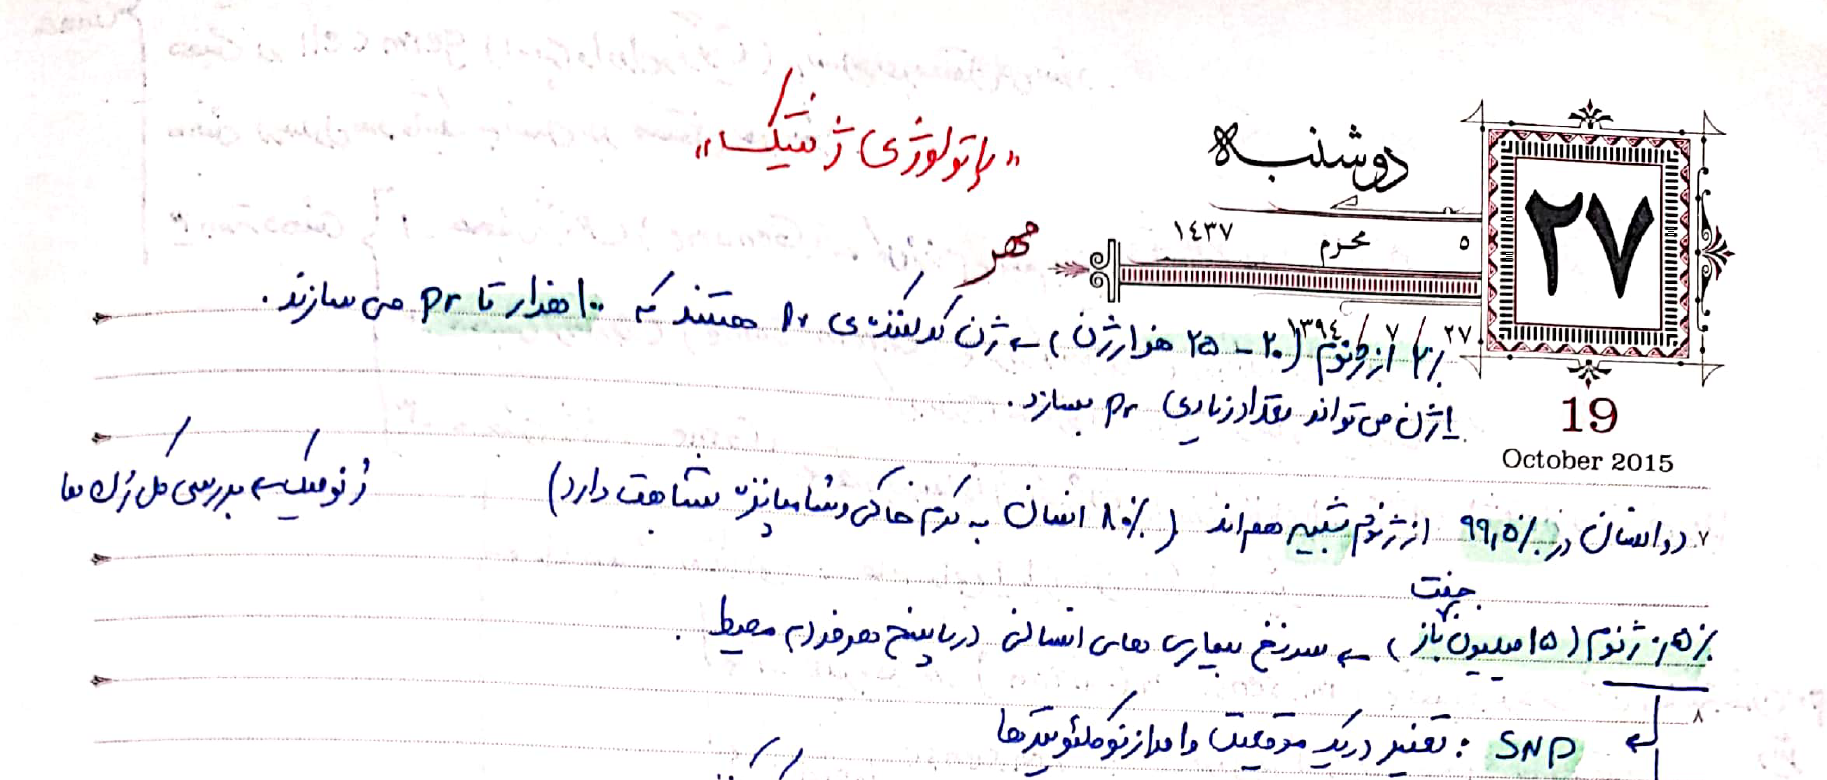 «پاتولوژی ژنتیک»
دوشنبه
۲۷
مهر
۵ محرم ۱۴۳۷
۲۷ / ۷ / ۱۳۹٤
19
October 2015
٪۲ از ژنوم (۲۰ - ۲۵ هزار ژن) ← ژن کدکننده‌ی pr هستند که ۱۰۰ هزار تا pr می سازند.
۱ ژن می تواند مقدار زیادی pr بسازد.
۷ دو انسان در ٪۹۹,۵ از ژنوم شبیه هم اند (٪۸۰ انسان به کرم خاکی و شامپانزه شباهت دارد)
ژنومیک ← بررسی کل ژن ها
جفت
٪۰,۵ ژنوم (۱۵ میلیون باز) ← سرنخ بیماری های انسانی در پاسخ هر فرد به محیط.
۸
SNP : تغییر در یک موقعیت واحد از نوکلئوتیدها